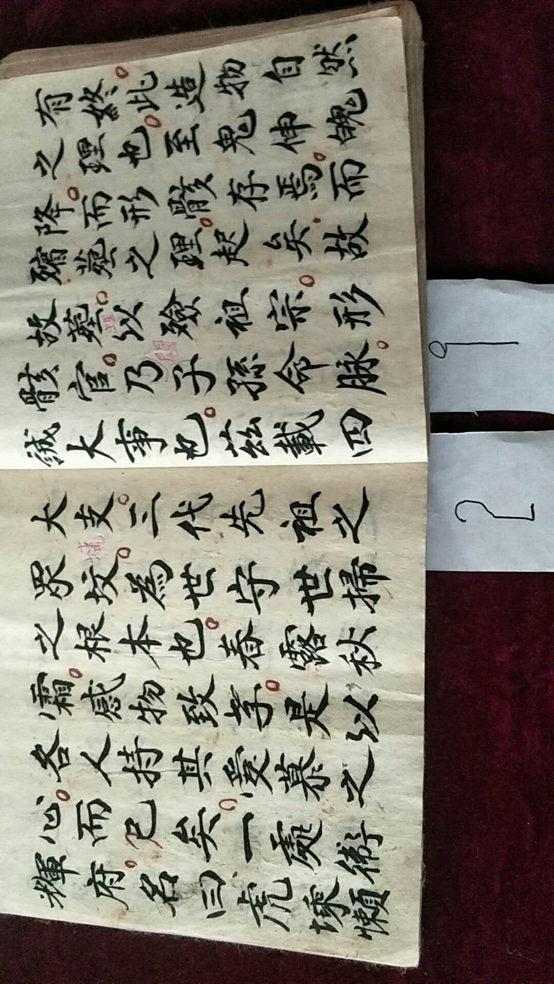 有終。此造物自然
之理也。至鬼伸魄
降。而形骸存焉。而
殯葬之理。起矣。故
故墓。以殮祖宗。形
骸官。乃子孫命脉。
誠大事也。茲載四
大支。三代先祖之
眾坟。為世守世掃
之根本也。春露秋
霜。感物致孝。是以
各人持其愛慕之
心。而已矣。一處術
輝府。名曰虎墚懶
1
2